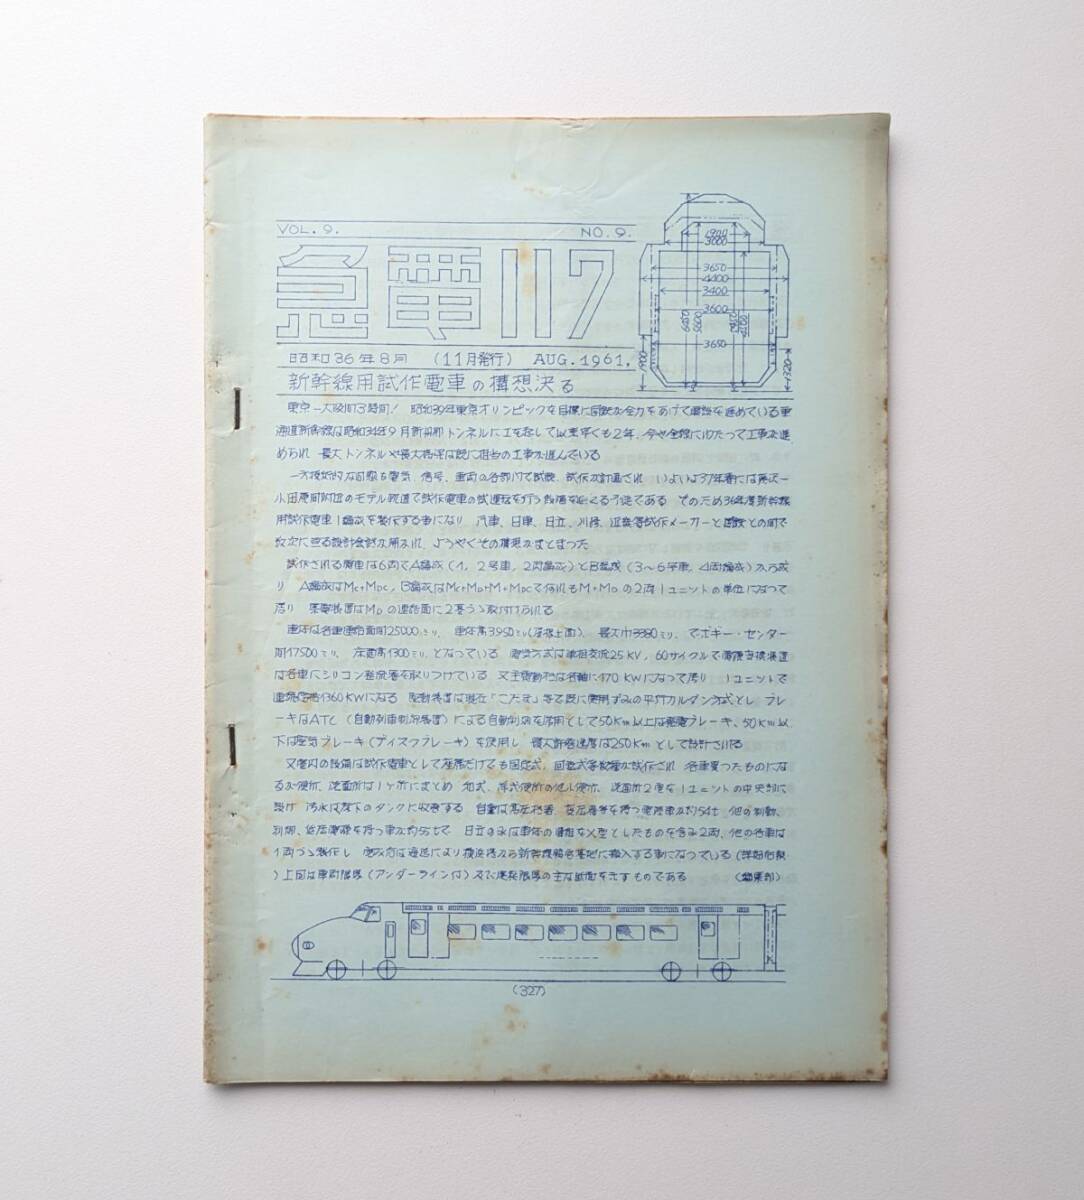 VOL. 9. NO. 9.
急電117
昭和36年8月 (11月発行) AUG. 1961.
新幹線用試作電車の構想決る
1900
3000
3650
4400
3400
3600
3650
1900
1320
東京―大阪間3時間! 昭和39年東京オリンピックを目標に国鉄が全力をあげて建設を進めている東
海道新幹線は昭和34年9月新丹那トンネルに工を起して以来早くも2年、今や全線にわたって工事が進
められ 最大トンネルや長大橋梁は既に相当の工事が進んでいる
一方技術的な問題も電気、信号、車両の各部内で試験、試作が計画され いよいよ37年春には
小田原間のモデル軌道で試作電車の試運転を行う段階をむかえる そのため36年度新幹線
用試作電車1編成を製作する事になり、汽車、日車、日立、川崎、近車等試作メーカーと国鉄との間で
数次に亘る設計会議が開かれ、ようやくその構想がまとまった
試作される電車は6両でA編成(1、2号車、2両編成)とB編成(3~6号車、4両編成)から成
り A編成はMc+Mpc、B編成はMc+Mp+M+Mpcで何れもM+Mpの2両1ユニットの単位になって
居り 集電装置はMpの連結面に2基づゝ取付けられる
車体は各車連結面間25000ミリ、車体高3950ミリ(屋根上面)、最大巾3380ミリ、でボギー・センター
間17500ミリ、床面高1300ミリ、となっている 電気方式は単相交流25KV、60サイクルで電流変換装置
は各車にシリコン整流器を取りつけている 又主電動機は各軸に170KWになって居り 1ユニットで
連続定格1360KWになる 駆動装置は現在「こだま」等で既に使用ずみの平行カルダン方式とし ブレ
ーキはATC(自動列車制御装置)による自動制御を併用として50Km以上は発電ブレーキ、50Km以
下は空気ブレーキ(ディスクブレーキ)を使用し 最大許容速度は250Kmとして設計される
又室内の設備は試作電車として座席だけでも固定式、回転式等数種が試作され 各車異ったものにな
るが便所、洗面所は1ヶ所にまとめ 和式、洋式便所の他小便所、洗面所2ヶを1ユニットの中央部に
設け 汚水は床下のタンクに収容する 自重は高圧機器、変圧器等を持つ電源車が約54t 他の制動、
制御、低圧電源を持つ車が約55tで 日立の
1両づゝ製作し
)上図は車両限界(アンダーライン付)及び建築限界の主な断面を示すものである (編集部)
(327)